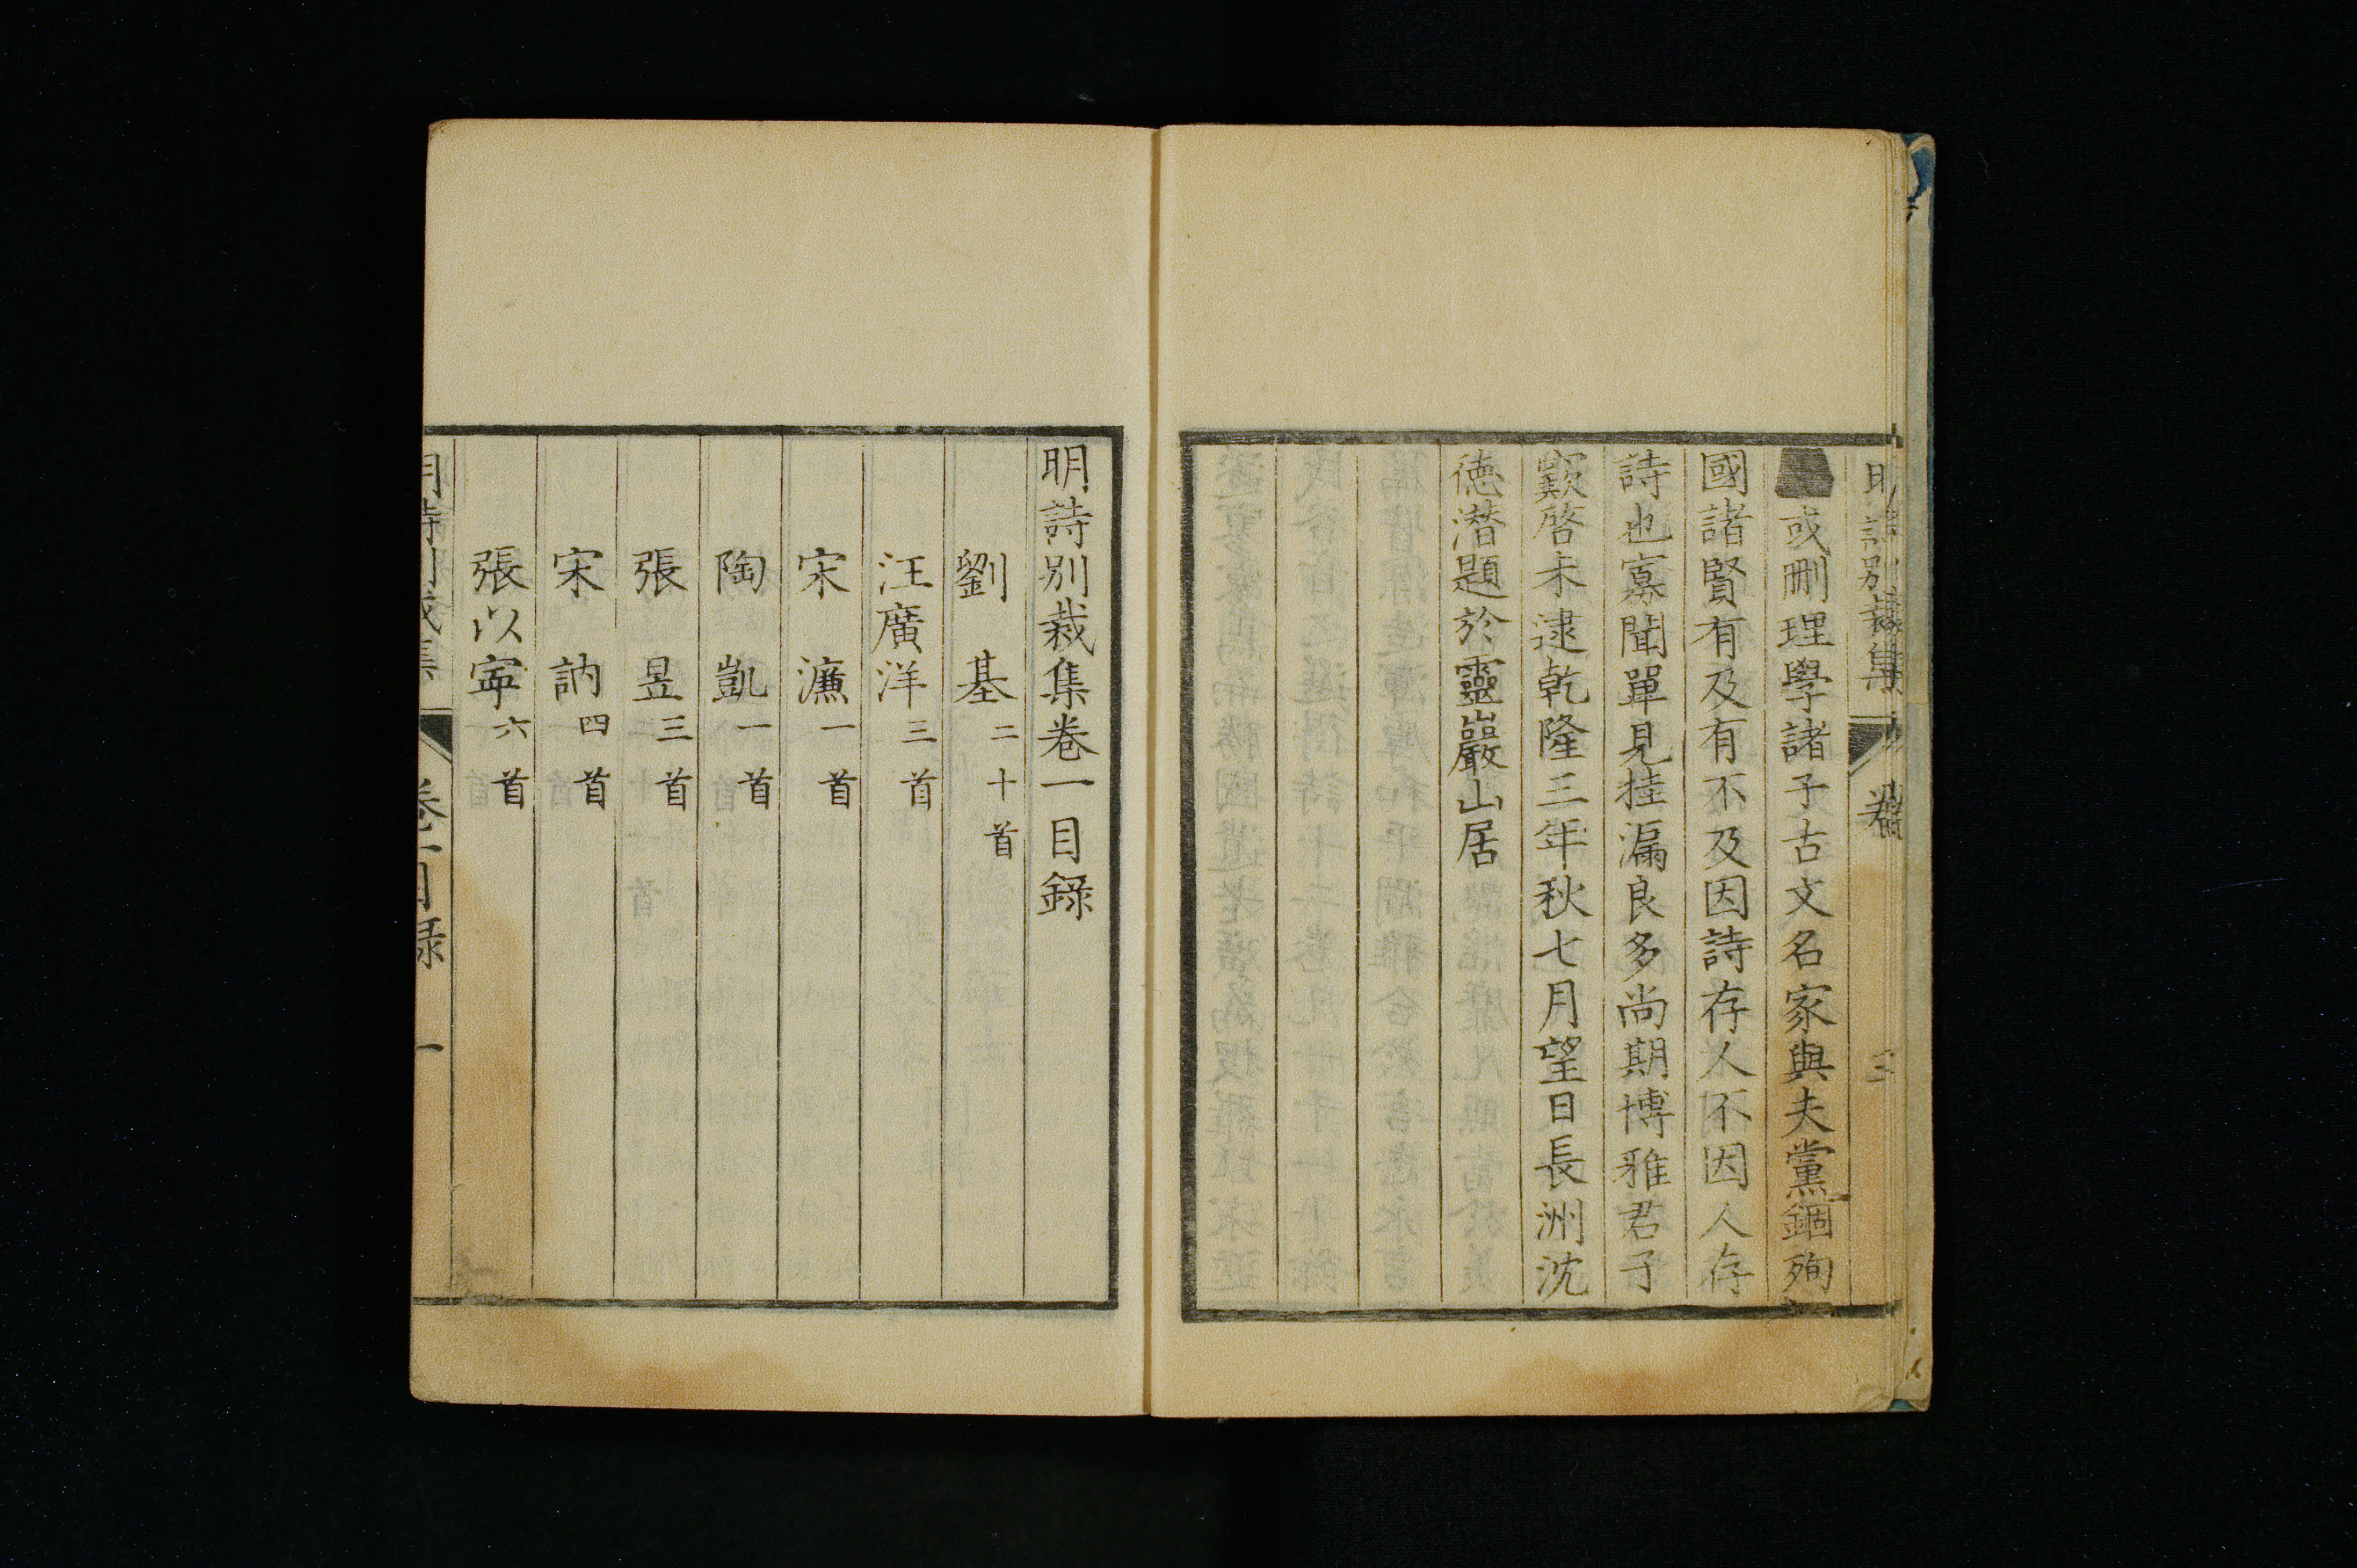 或刪理學諸子古文名家與夫黨錮殉
國諸賢有及有不及因詩存人不因人存
詩也寡聞單見挂漏良多尚期博雅君子
欵啓未逮乾隆三年秋七月望日長洲沈
徳潛題於靈巖山居
明詩別裁集卷一目錄
劉基二十首
汪廣洋三首
宋濂一首
陶凱一首
張昱三首
宋訥四首
張以寧六首
明詩別裁集 卷一目錄 一